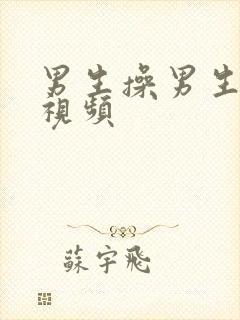 男生操男生
視頻
蘇宇飛